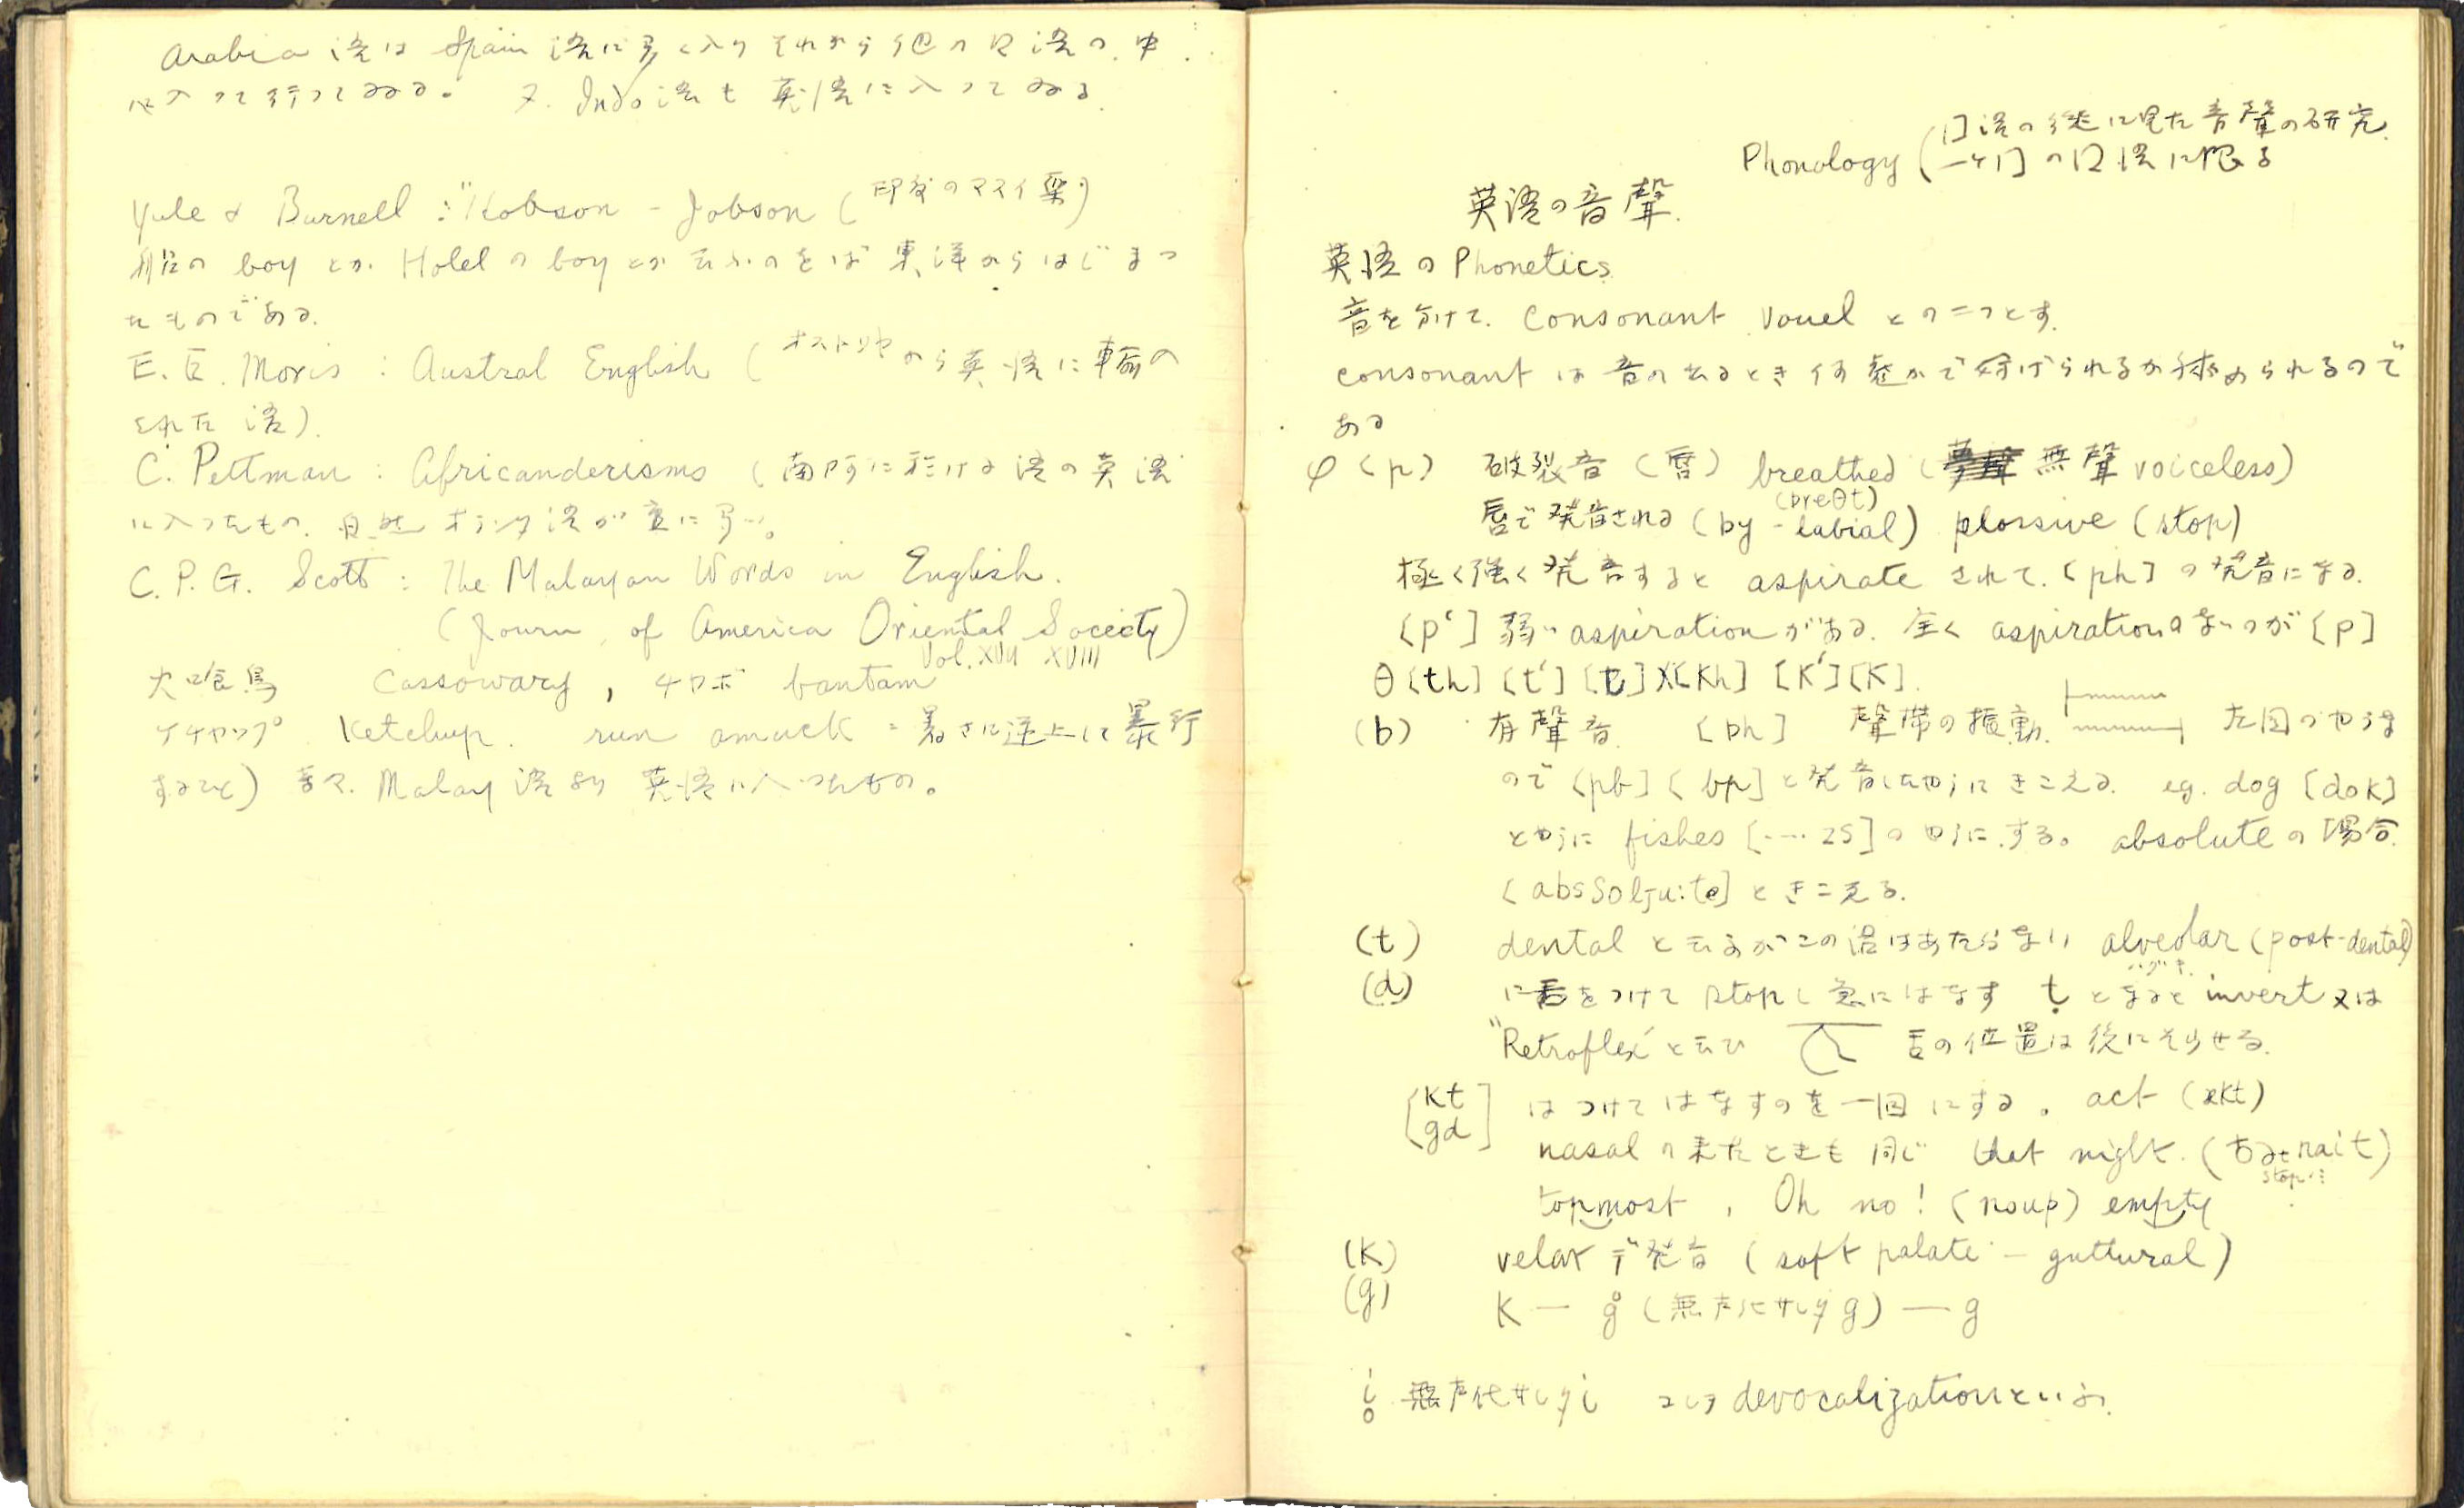 Arabia 語は Spain 語に多く入りそれから他の国語の中
に入って行ってゐる。 又 Indo 語も英語に入ってゐる
Yule & Burnell : "Hobson-Jobson (印度の
船の boy とか Hotel の boy とか云ふのをば東洋からはじまつ
たものである.
E. E. Moris : Austral English ( から英語に輸入
された語).
C. Pettman : Africanderisms (南阿に於ける語の英語
に入つたもの. 自然オランダ語が 多い。
C. P. G. Scott : The Malayan Words in English.
(Journ. of America Oriental Socecty)
Vol. XVII XVIII
火喰鳥 Cassowary , チャボ bantam
ケチャップ Ketchup. run amuck = 暑さに逆上して暴行
すること) Malay 語より英語に入つたもの。
Phonology ( の研究.
英語の音聲.
英語の Phonetics.
音を分けて. consonant vowel との二つとす.
consonant は音の出るとき何處かで妨げられるか されるので
ある
φ [p] 破裂音 (唇) breathed ( 無聲 voiceless)
(breθt)
唇で発音される (by-labial) plossive (stop)
極く強く発音すると aspirate されて. [ph] の発音になる.
[p'] 弱い aspiration がある. 全く aspiration のないのが [p]
θ [th] [t'] [t] χ[Kh] [K'] [K].
(b) 有聲音 [bh] 聲帯の振動. 左図のやうな
ので [pb] [bp] と発音したやうにきこえる. eg. dog [dok]
とやうに fishes [....zs] のやうにする。 absolute の場合
[absSolju:te] ときこえる.
(t) dental と云ふがこの語はあたらない alveolar (post-dental)
ハグキ.
(d) に舌をつけて stop し急にはなす ṭ となると invert 又は
"Retroflex" と云ひ 舌の位置は後にそらせる.
[kt gd] はつけてはなすのを一回にする。 act (ækt)
nasal の来たときも同じ that night. (ðətnait)
stop
topmost , Oh no! (noup) empty
(K) velar デ発音 (soft palate - guttural)
(g) K — g̊ (無声化サレタ g) — g
i̥ 無声化サレタ i コレヲ devocalization といふ.